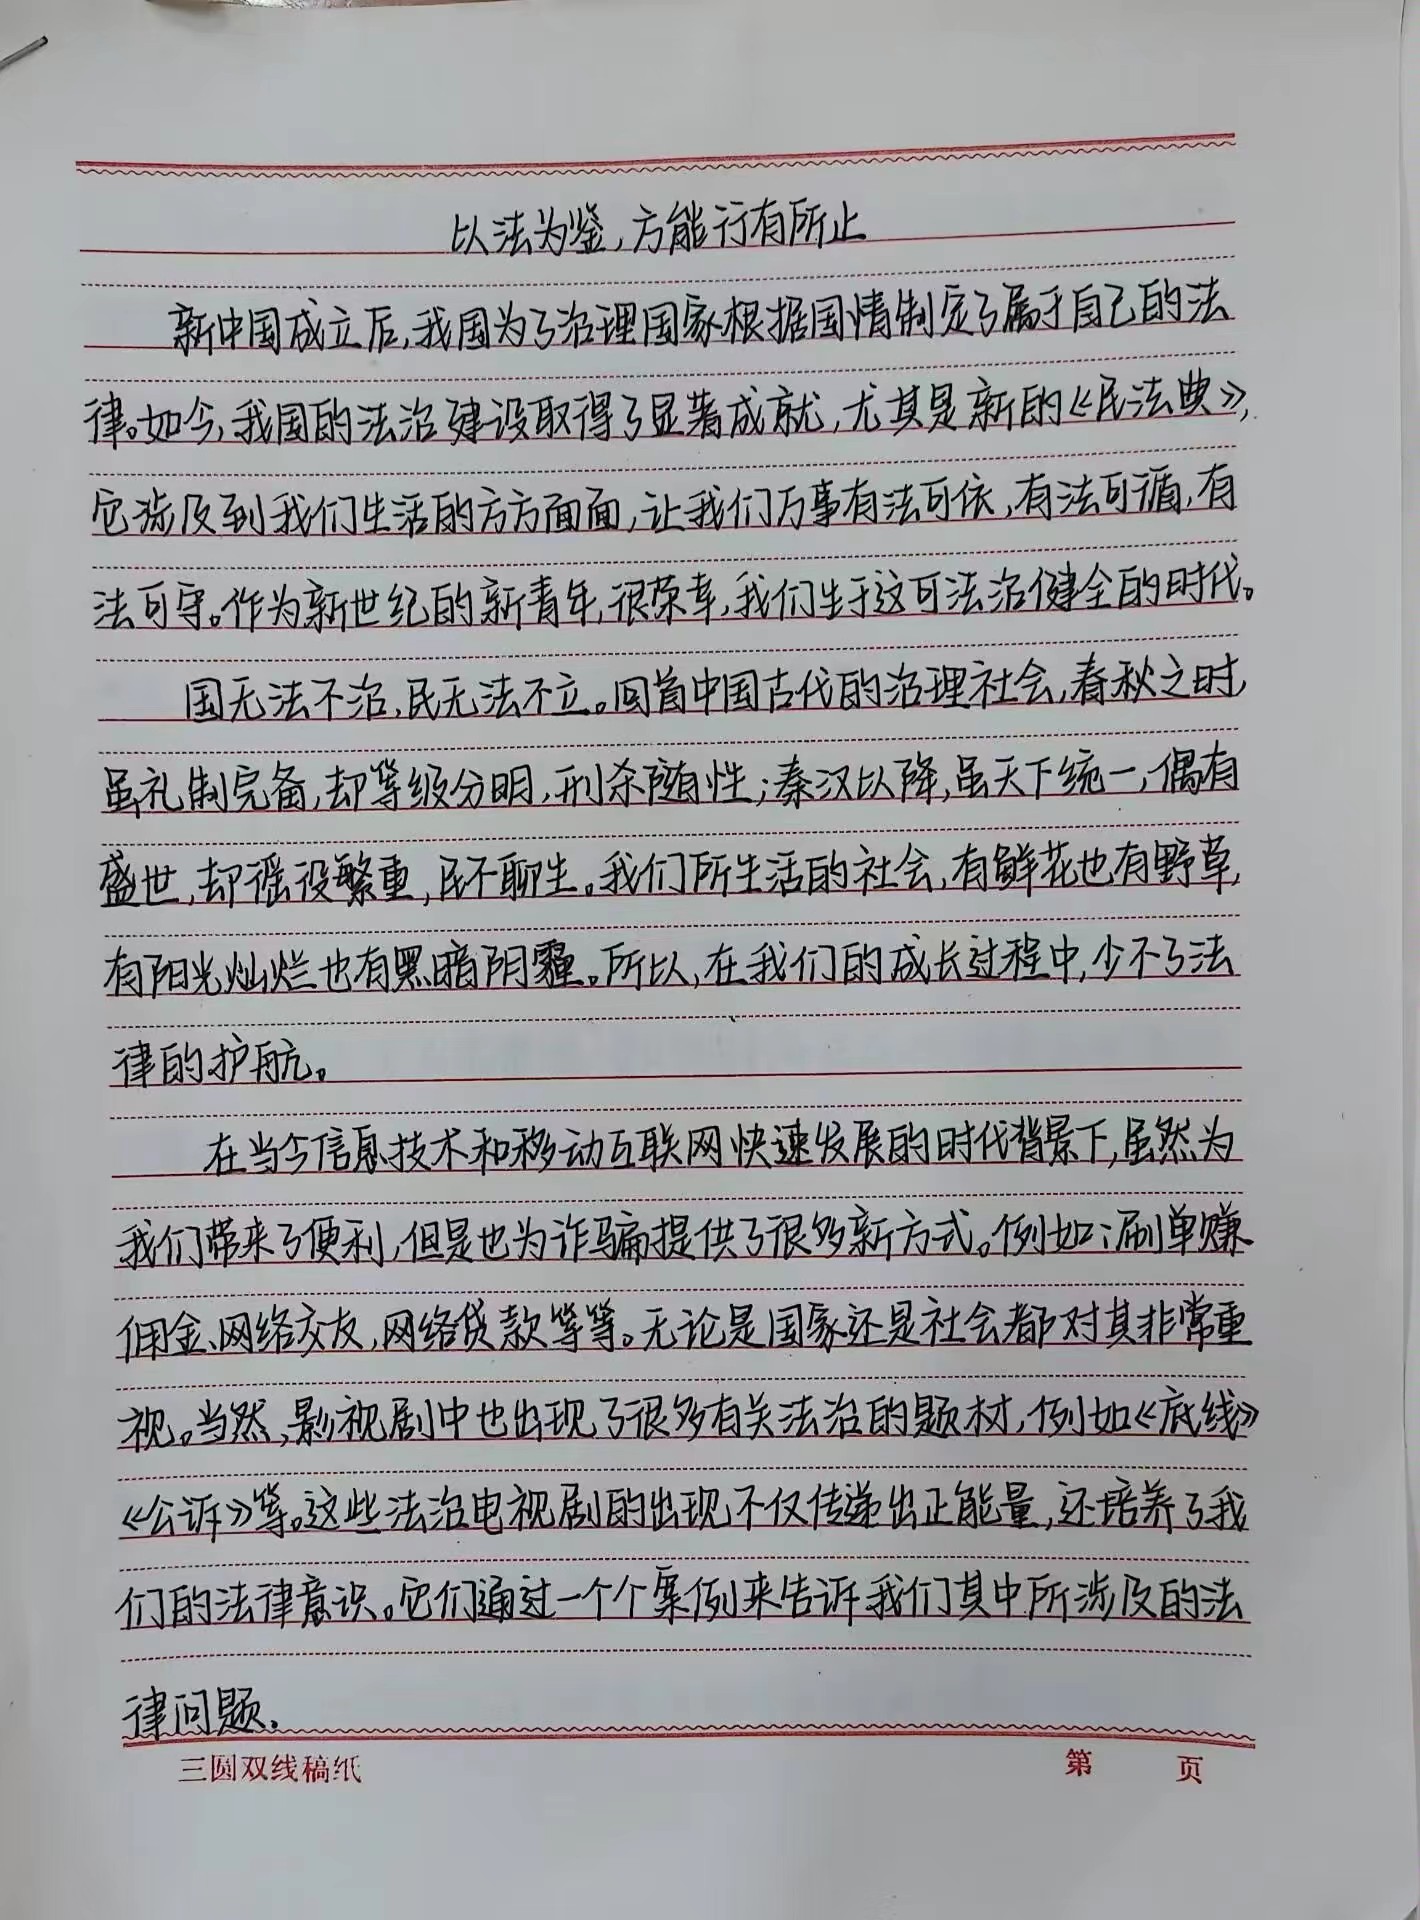 以法为鉴，方能行有所止
新中国成立后，我国为了治理国家根据国情制定了属于自己的法
律。如今，我国的法治建设取得了显著成就，尤其是新的《民法典》，
它涉及到我们生活的方方面面，让我们万事有法可依，有法可循，有
法可守。作为新世纪的新青年，很荣幸，我们生于这可法治健全的时代。
国无法不治，民无法不立。回首中国古代的治理社会，春秋之时，
虽礼制完备，却等级分明，刑杀随性；秦汉以降，虽天下统一，偶有
盛世，却徭役繁重，民不聊生。我们所生活的社会，有鲜花也有野草，
有阳光灿烂也有黑暗阴霾。所以，在我们的成长过程中，少不了法
律的护航。
在当今信息技术和移动互联网快速发展的时代背景下，虽然为
我们带来了便利，但是也为诈骗提供了很多新方式。例如：刷单赚
佣金、网络交友，网络贷款等等。无论是国家还是社会都对其非常重
视。当然，影视剧中也出现了很多有关法治的题材，例如《底线》
《公诉》等。这些法治电视剧的出现不仅传递出正能量，还培养了我
们的法律意识。它们通过一个个案例来告诉我们其中所涉及的法
律问题。
三圆双线稿纸
第 页